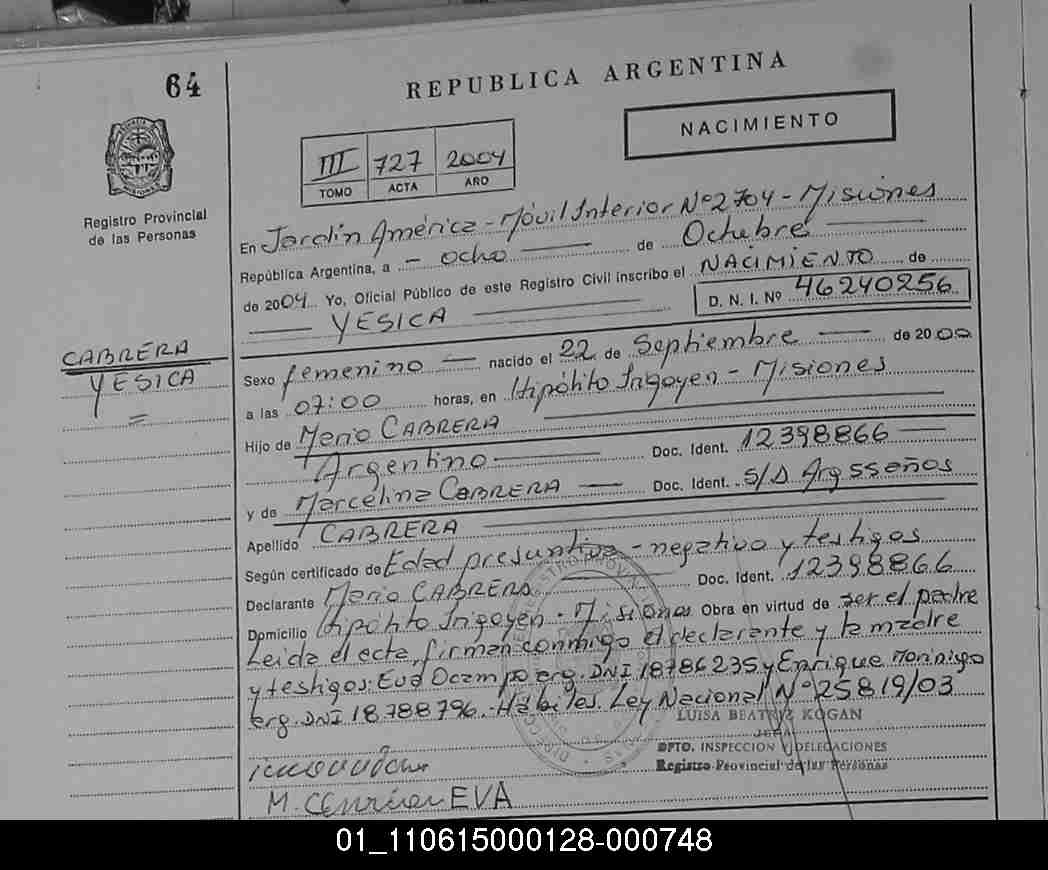 64
REPUBLICA ARGENTINA
NACIMIENTO
III 727 2004
TOMO ACTA AÑO
Registro Provincial
de las Personas
En Jardín América - Móvil Interior Nº 2704 - Misiones
República Argentina, a - ocho de Octubre
de 2004 Yo, Oficial Público de este Registro Civil inscribo el NACIMIENTO de
YESICA D. N. I. Nº 46240256
CABRERA
YESICA
Sexo femenino nacido el 22 de Septiembre de 2000
a las 07:00 horas, en Hipólito Irigoyen - Misiones
Hijo de Mario CABRERA
Argentino Doc. Ident. 12398866
y de Marcelina CABRERA Doc. Ident. S/D Arg
Apellido CABRERA
Según certificado de Edad presuntiva - negativo y testigos
Declarante Mario CABRERA Doc. Ident. 12398866
Domicilio Hipólito Irigoyen - Misiones Obra en virtud de ser el padre
Leida el acta, firman conmigo el declarante y la madre
y testigos: Eva Ocampo arg. DNI 18786235 y Enrique
arg. DNI 18.788796. Hábiles. Ley Nacional Nº 25819/03
LUISA BEATRIZ KOGAN
JEFA
DPTO. INSPECCION Y DELEGACIONES
Registro Provincial de las Personas
EVA
01_110615000128-000748